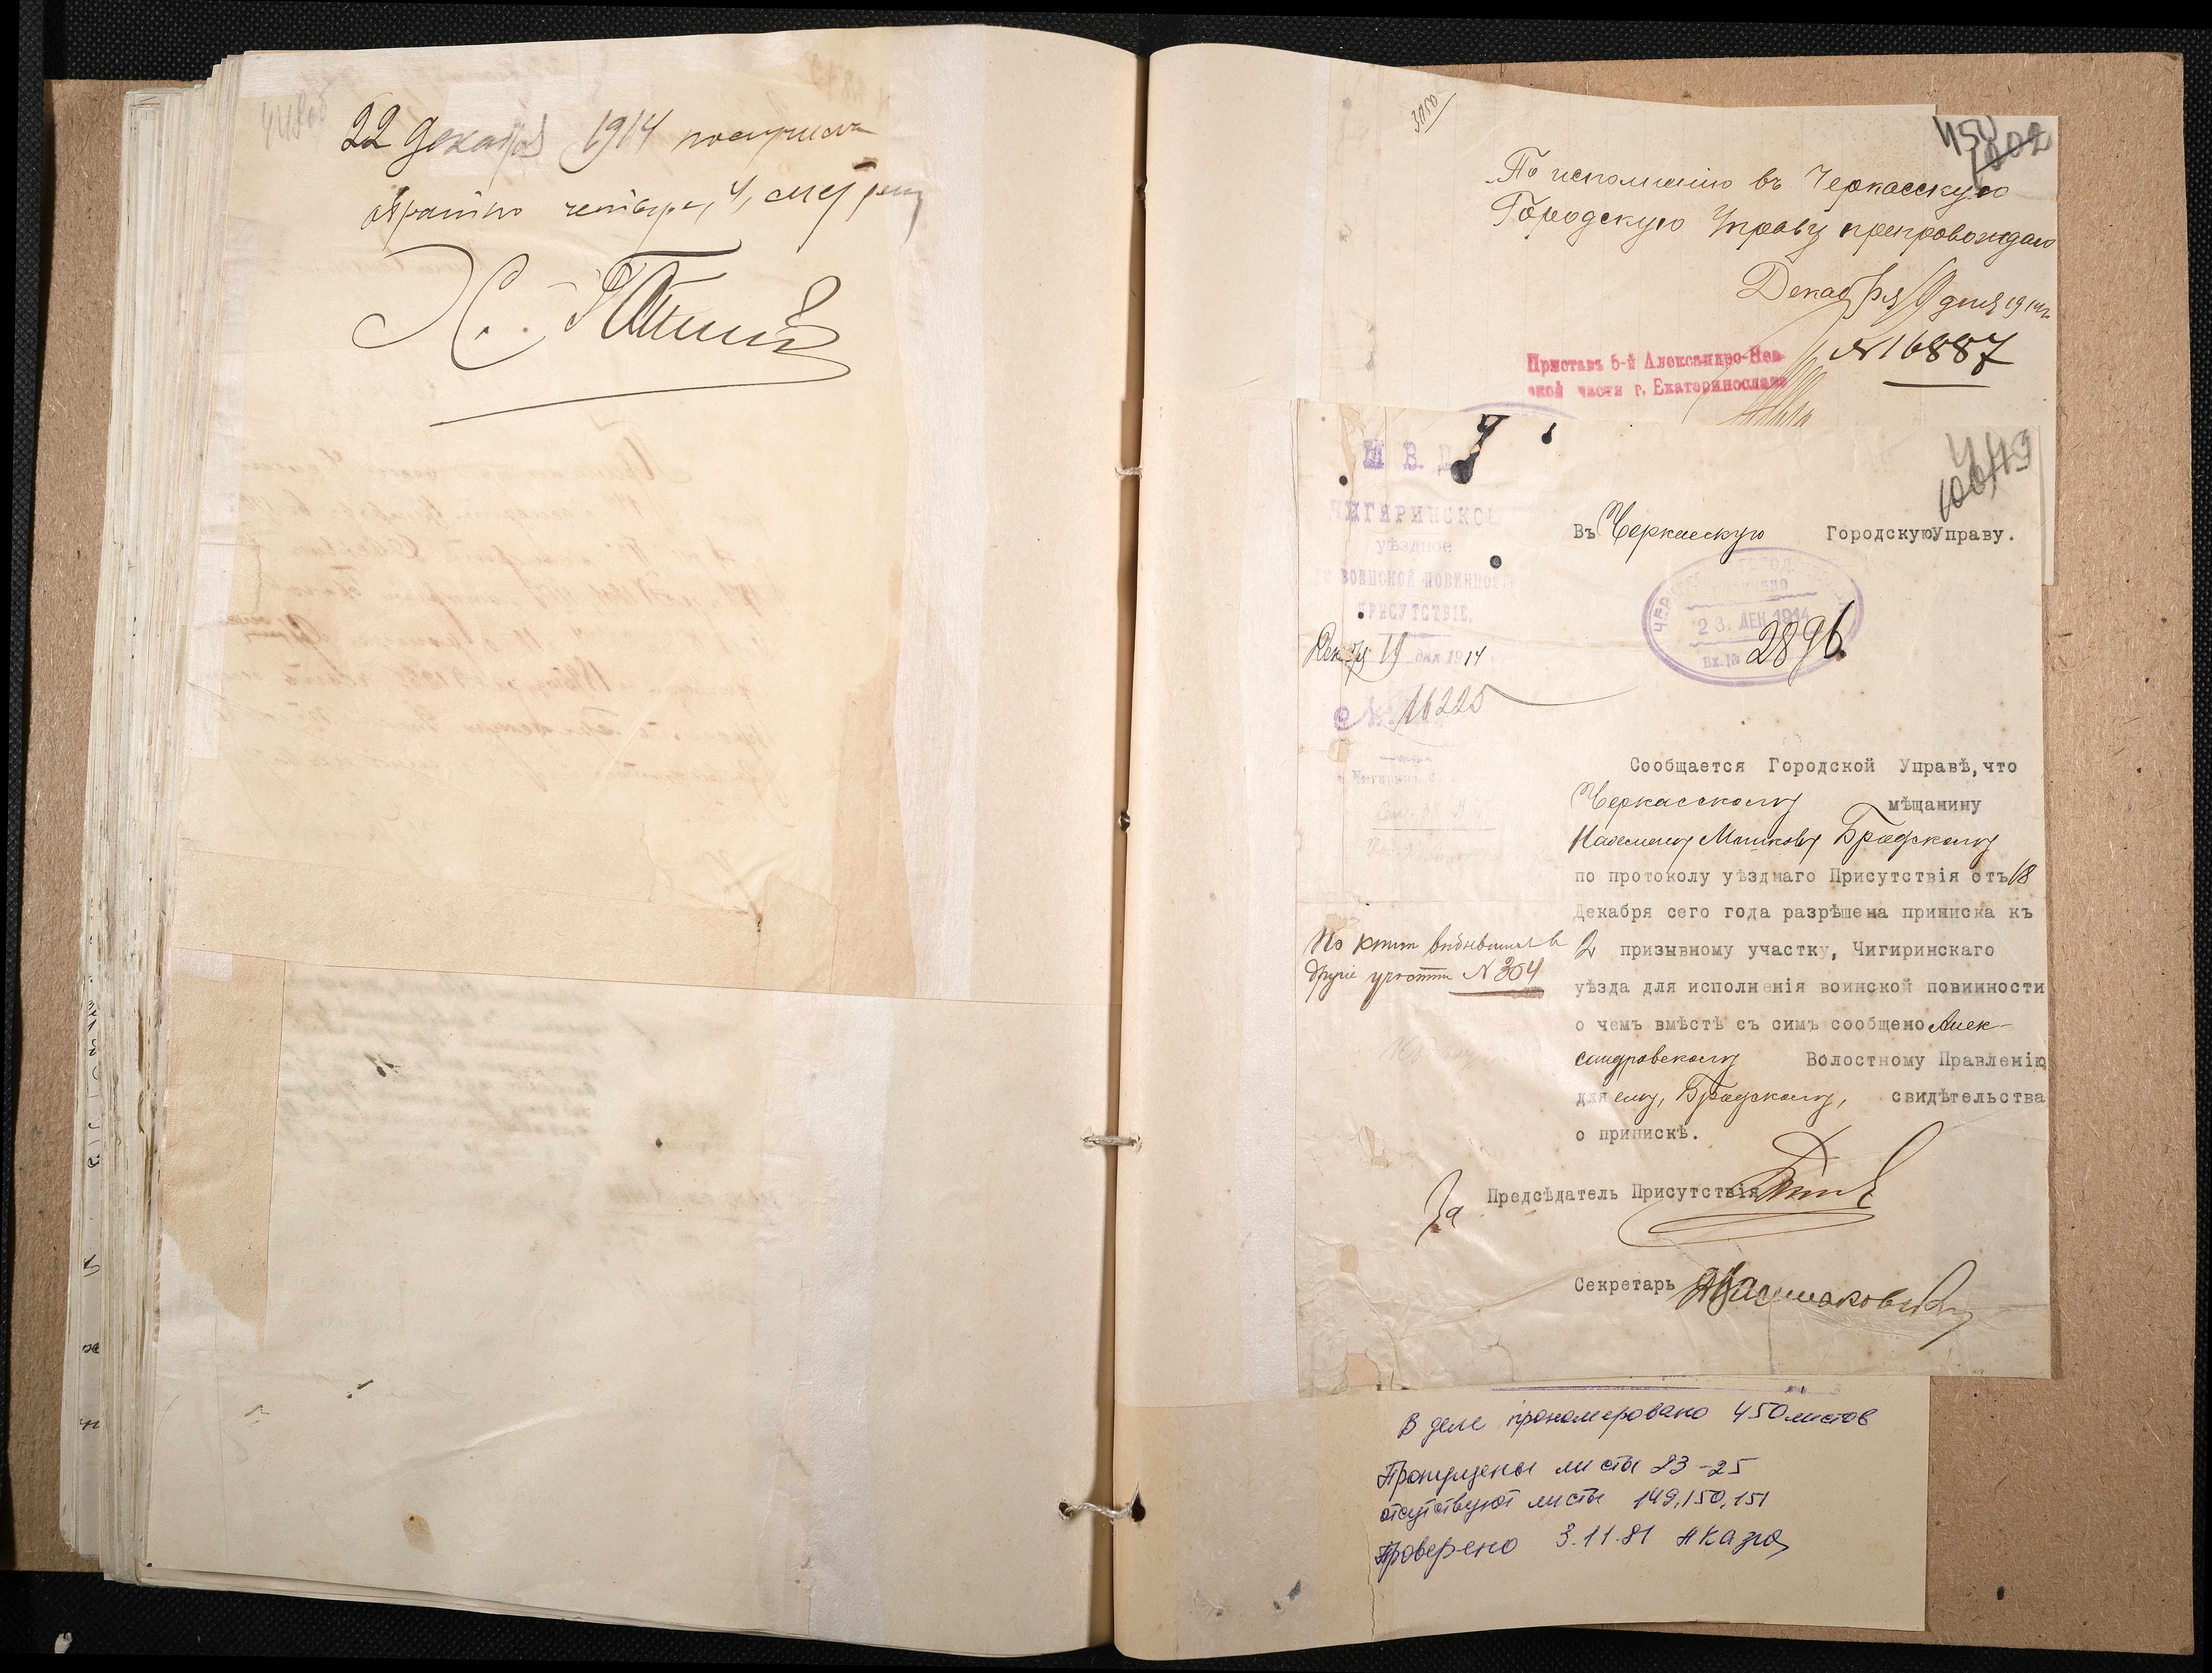 22 Декабря 1914 получилъ
обратно четыре, 4, метрик
3150
450
1002
По исполненію въ Черкасскую
Городскую Управу препровождаю
Декабря 9 дня 1914 г.
№ 16887
Приставъ 6-й Александро-Нев-
ской части г. Екатеринослава
449
М. В. Д.
ЧИГИРИНСКОЕ
уѣздное
по ВОИНСКОЙ ПОВИННОСТИ
ПРИСУТСТВІЕ.
Декабря 19 дня 1914
№ 16225
Въ Черкасскую Городскую Управу.
23. ДЕК 1914
Вх. № 2896
Сообщается Городской Управѣ, что
Черкасскому мѣщанину
Мошкову Бродскому
по протоколу уѣзднаго Присутствія отъ 18
Декабря сего года разрѣшена приписка къ
2 призывному участку, Чигиринскаго
уѣзда для исполненія воинской повинности
о чемъ вмѣстѣ съ симъ сообщено Алек-
сандровскому Волостному Правленію
для ему, Бродскому, свидѣтельства
о припискѣ.
По книгѣ выбывшихъ въ
другіе участки № 304
За Предсѣдатель Присутствія
Секретарь
В деле пронумеровано 450 листов
Пропущены листы 23-25
отсутствуют листы 149, 150, 151
Проверено 3.11.81